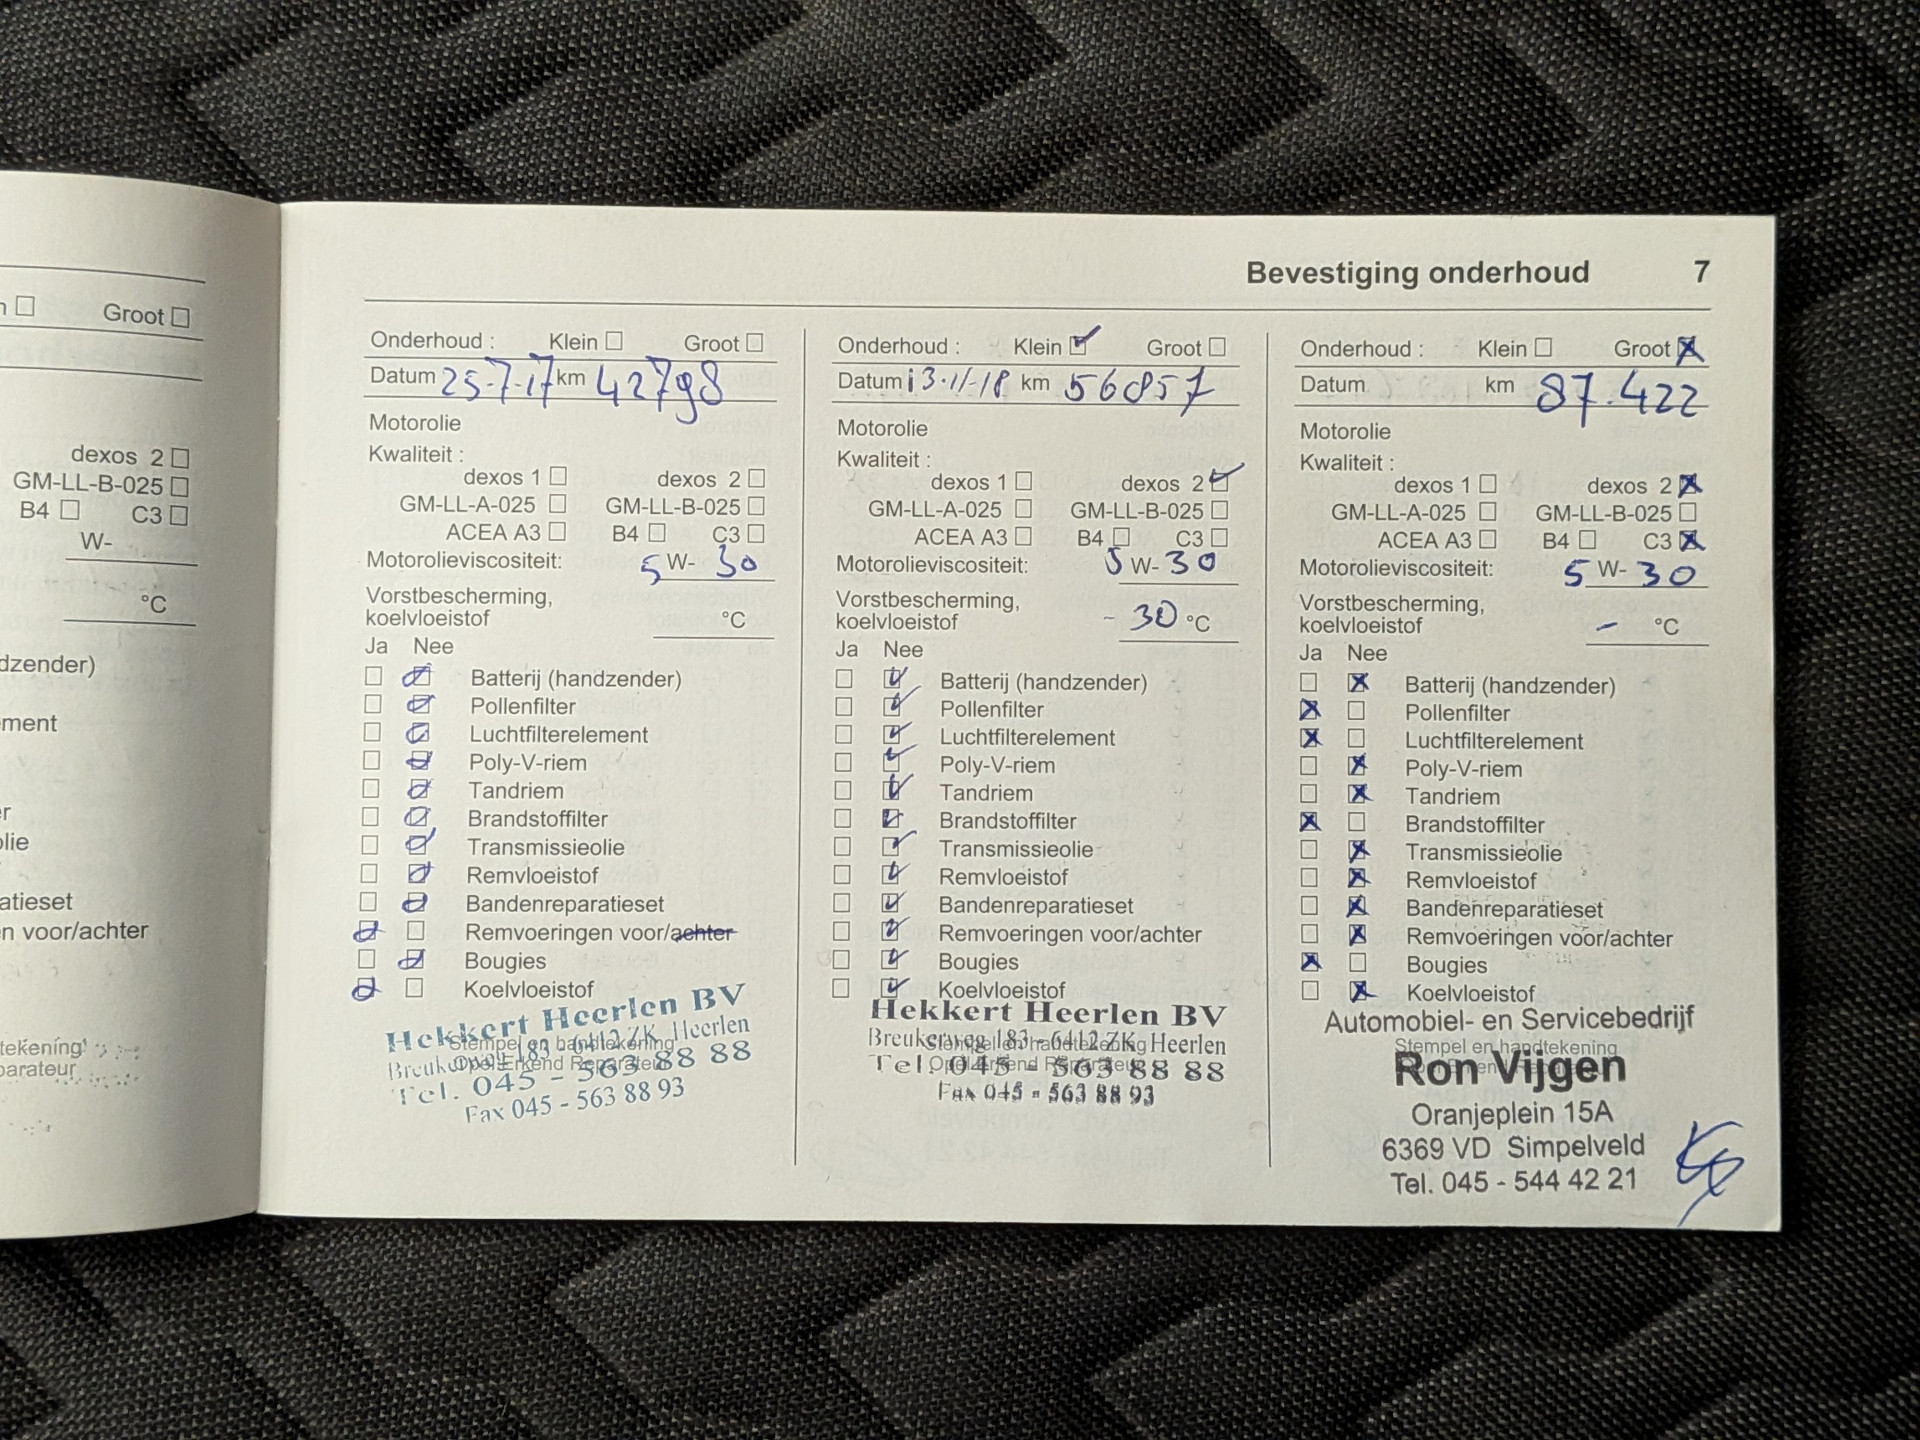 Groot
dexos 2
GM-LL-B-025
B4 C3
W-
°C
dzender)
ment
r
olie
atieset
n voor/achter
tekening
parateur
Bevestiging onderhoud 7
Onderhoud : Klein Groot
Datum 25-7-17 km 42798
Motorolie
Kwaliteit :
dexos 1 dexos 2
GM-LL-A-025 GM-LL-B-025
ACEA A3 B4 C3
Motorolieviscositeit: 5 W- 30
Vorstbescherming,
koelvloeistof °C
Ja Nee
Batterij (handzender)
Pollenfilter
Luchtfilterelement
Poly-V-riem
Tandriem
Brandstoffilter
Transmissieolie
Remvloeistof
Bandenreparatieset
Remvoeringen voor/achter
Bougies
Koelvloeistof
Stempel en handtekening
Opel Erkend Reparateur
Hekkert Heerlen BV
Breukerweg 183 - 6412 ZK Heerlen
Tel. 045 - 563 88 88
Fax 045 - 563 88 93
Onderhoud : Klein Groot
Datum 13-11-18 km 56857
Motorolie
Kwaliteit :
dexos 1 dexos 2
GM-LL-A-025 GM-LL-B-025
ACEA A3 B4 C3
Motorolieviscositeit: 5 W- 30
Vorstbescherming,
koelvloeistof - 30 °C
Ja Nee
Batterij (handzender)
Pollenfilter
Luchtfilterelement
Poly-V-riem
Tandriem
Brandstoffilter
Transmissieolie
Remvloeistof
Bandenreparatieset
Remvoeringen voor/achter
Bougies
Koelvloeistof
Stempel en handtekening
Opel Erkend Reparateur
Hekkert Heerlen BV
Breukerweg 183 - 6412 ZK Heerlen
Tel 045 - 563 88 88
Fax 045 - 563 88 93
Onderhoud : Klein Groot
Datum km 87.422
Motorolie
Kwaliteit :
dexos 1 dexos 2
GM-LL-A-025 GM-LL-B-025
ACEA A3 B4 C3
Motorolieviscositeit: 5 W- 30
Vorstbescherming,
koelvloeistof - °C
Ja Nee
Batterij (handzender)
Pollenfilter
Luchtfilterelement
Poly-V-riem
Tandriem
Brandstoffilter
Transmissieolie
Remvloeistof
Bandenreparatieset
Remvoeringen voor/achter
Bougies
Koelvloeistof
Automobiel- en Servicebedrijf
Stempel en handtekening
Ron Vijgen
Oranjeplein 15A
6369 VD Simpelveld
Tel. 045 - 544 42 21